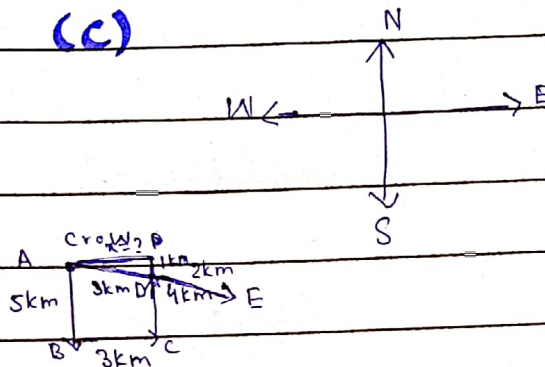 (C)
N
W E
S
Crow? P
A 1km 2km
5km 3km D 4km E
B 3km C